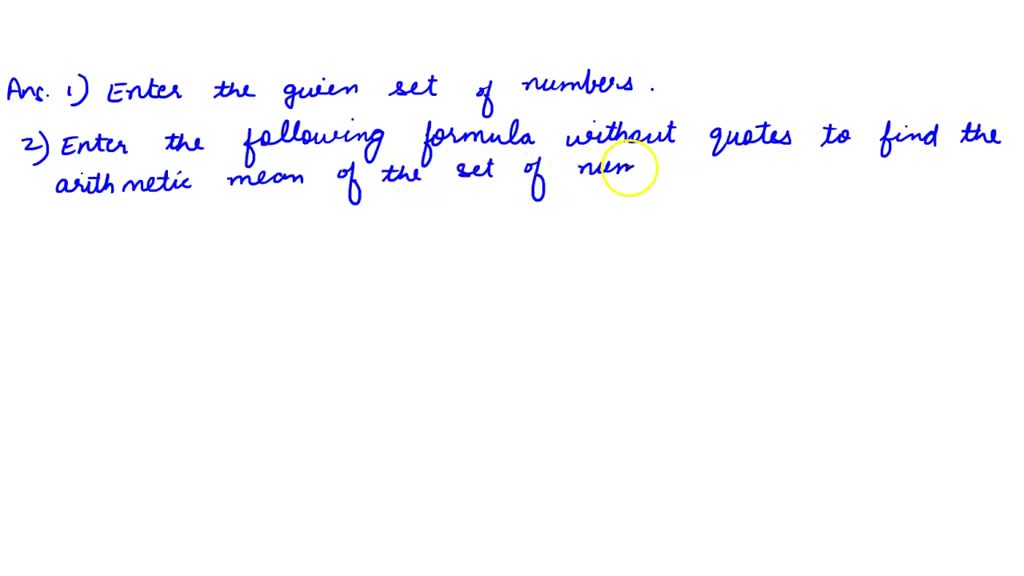 Ans. 1) Enter the given set of numbers.
2) Enter the following formula without quotes to find the
arithmetic mean of the set of num